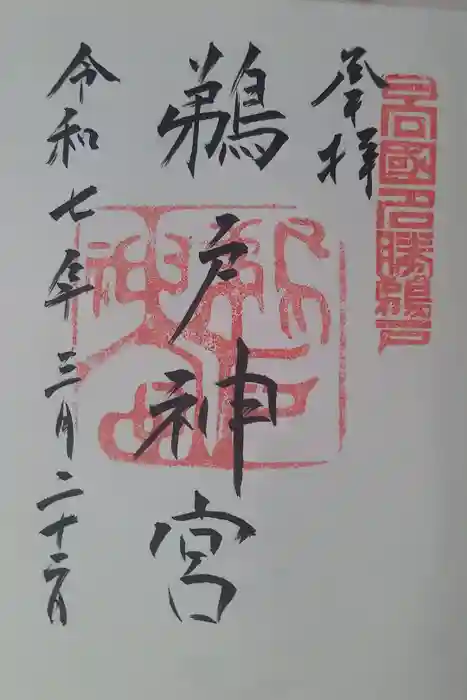 日向國名勝鵜戸
奉拝
鵜戸神宮
令和七年三月二十二日